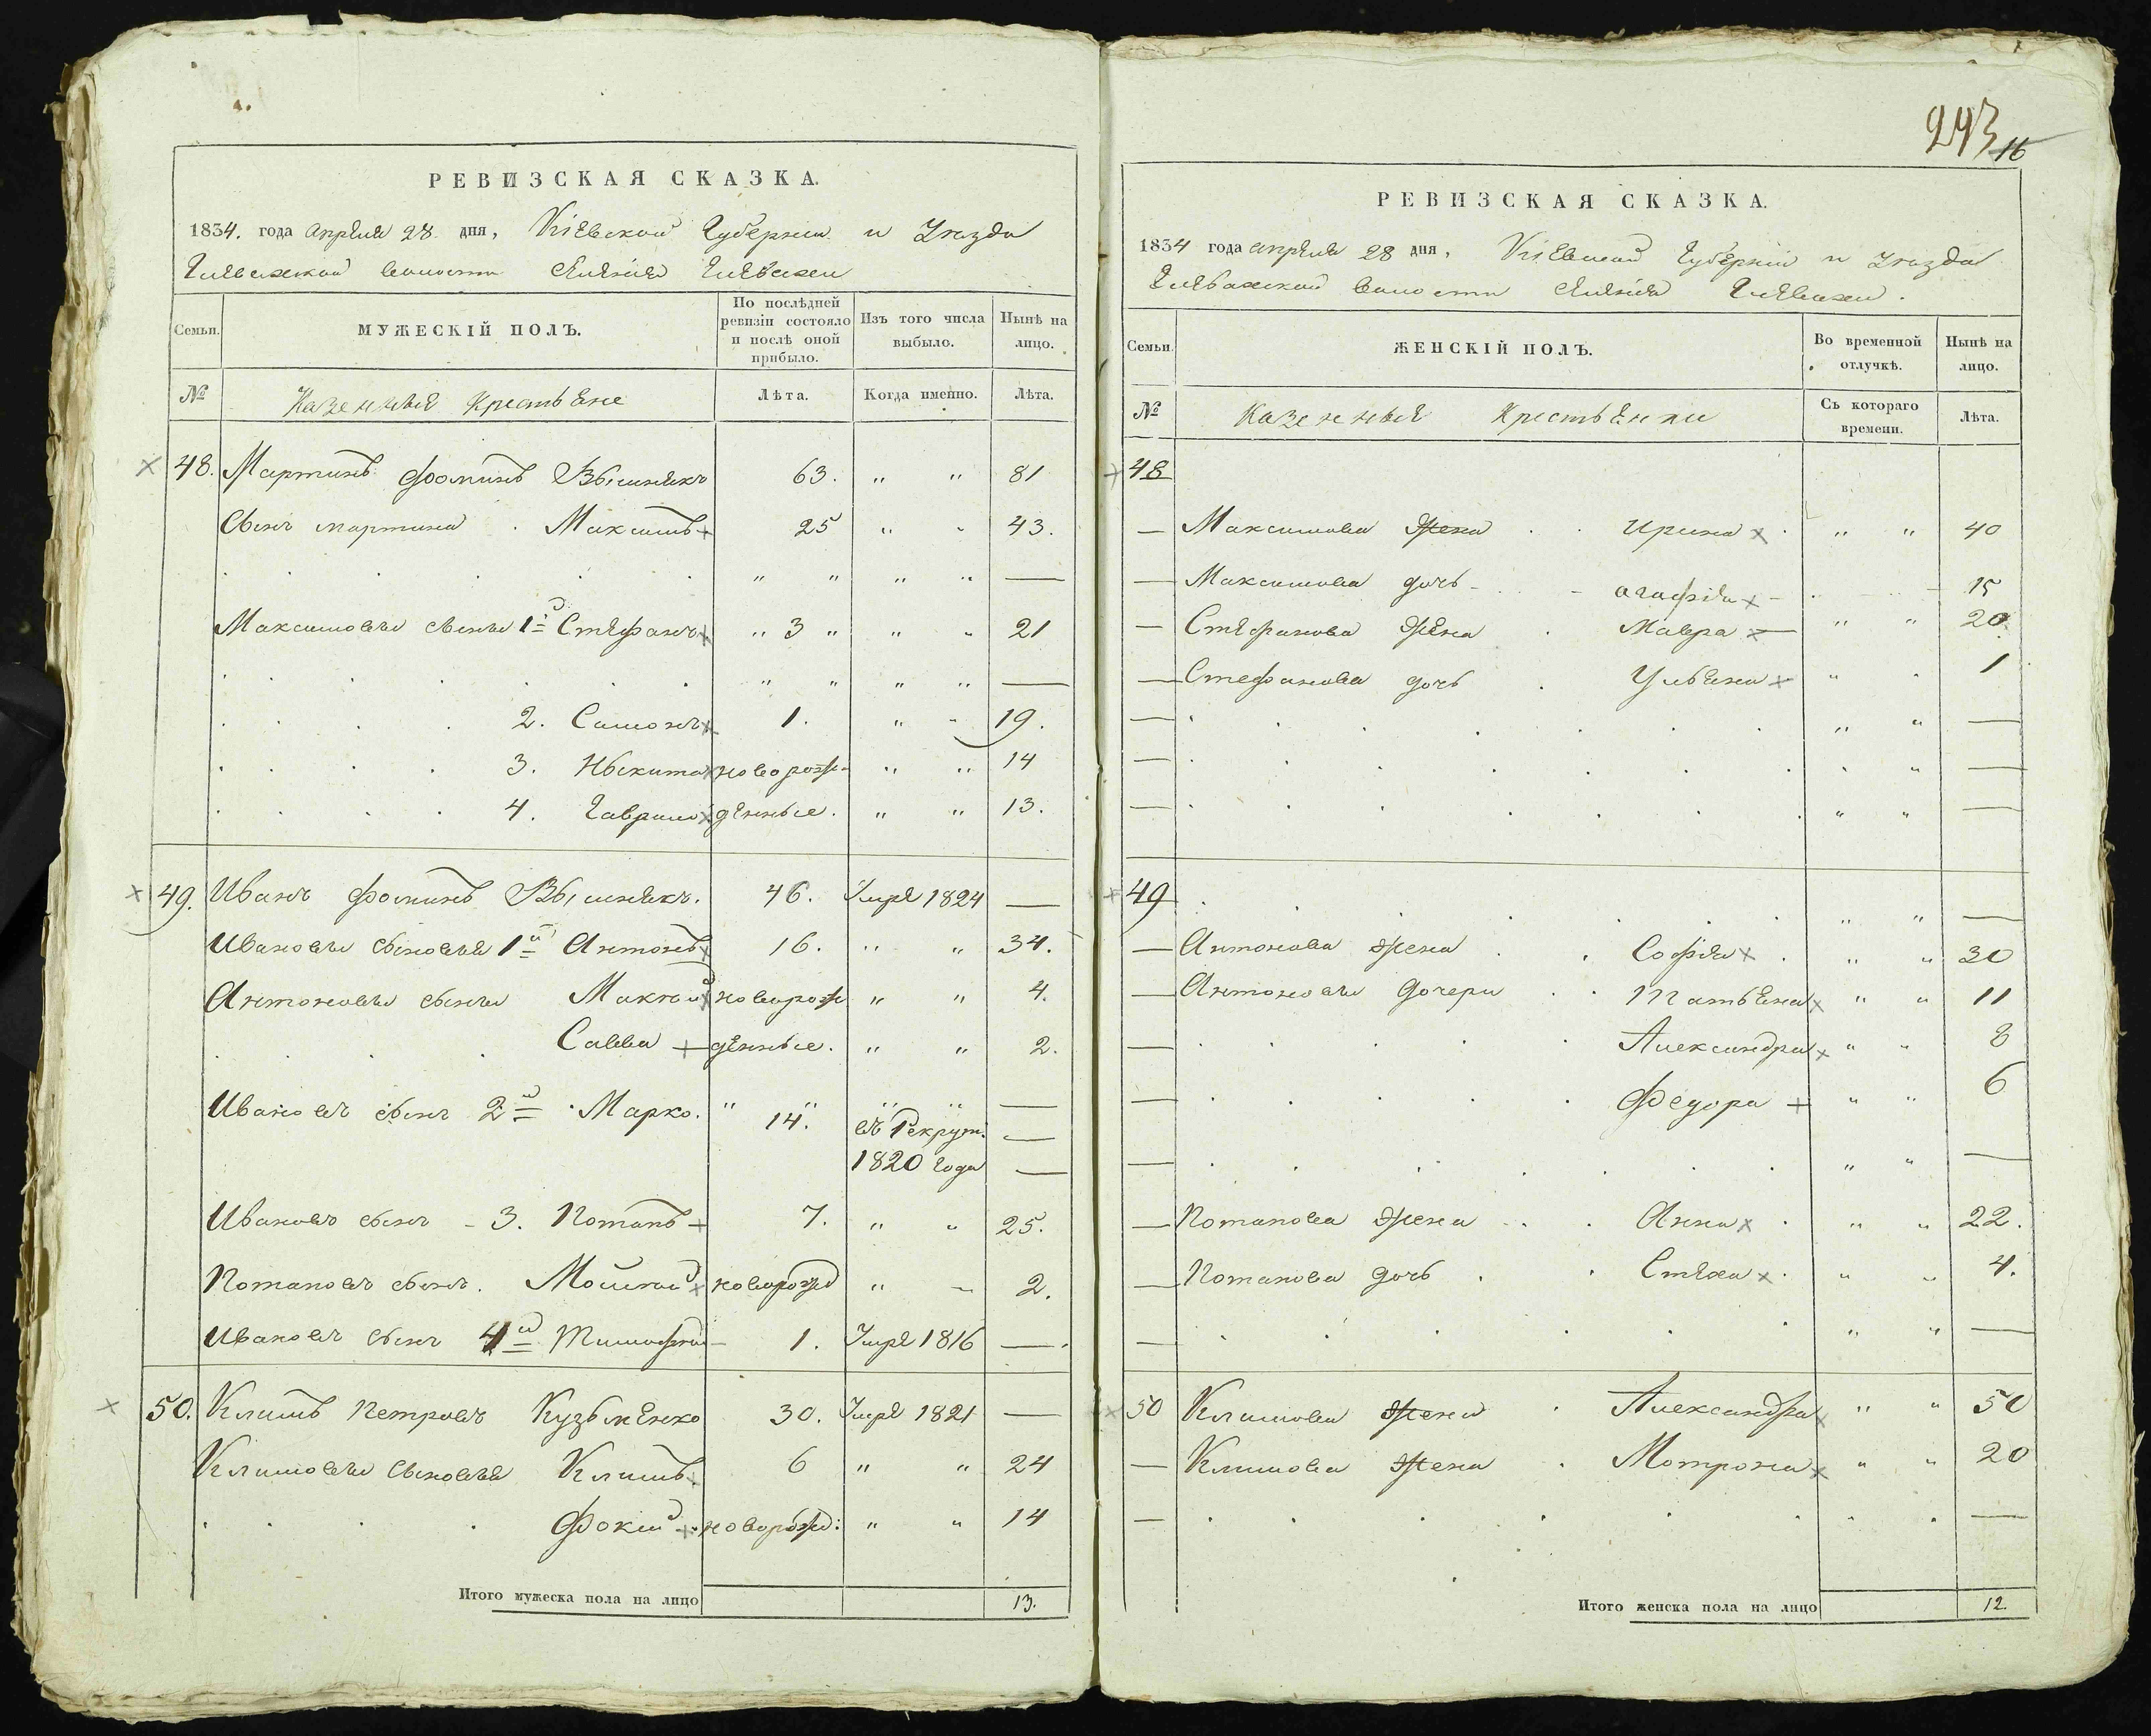 РЕВИЗСКАЯ СКАЗКА.
1834. года апреля 28 дня, Кіевской Губерніи и Уезда
Глевахской волости Селенія Глевахи
Семьи.
МУЖЕСКІЙ ПОЛЪ.
По послѣдней ревизіи состояло и послѣ оной прибыло.
Изъ того числа выбыло.
Нынѣ на лицо.
№
Казенныя Крестьяне
Лѣта.
Когда именно.
Лѣта.
48. Мартинъ Фоминъ Вышнякъ 63. " " 81
Сынъ мартина Максимъ 25 " " 43.
" " " " —
Максимовы сыны 1й Стефанъ " 3 " " " 21
" " " " —
2. Симонъ 1. " " 19.
3. Ныкита новорож- " " 14
4. Гаврило денные. " " 13.
49. Иванъ Фоминъ Вышнякъ. 46. Умре 1824 —
Ивановы сыновья 1й Антонъ 16. " " 34.
Антоновы сыны новорож " " 4.
Савва денные. " " 2.
Ивановъ сынъ 2й Марко. " 14. " " " —
въ Рекрут. —
1820 года —
Ивановъ сынъ - 3. Потапъ 7. " " 25.
Потаповъ сынъ. Мойсей новорожд " " 2.
Ивановъ сынъ 4й Тимофей 1. Умре 1816 —
50. Климъ Петровъ Кузьменко 30. Умре 1821 —
Климовы сыновья Климъ 6 " " 24
Фокий новорожд: " " 14
Итого мужеска пола на лицо 13.
243
16
РЕВИЗСКАЯ СКАЗКА.
1834 года апреля 28 дня, Кіевской Губерніи и Уезда
Глевахской волости Селенія Глевахи.
Семьи.
ЖЕНСКІЙ ПОЛЪ.
Во временной отлучкѣ.
Нынѣ на лицо.
№
Казенныя Крестьянки
Съ котораго времени.
Лѣта.
48
— Максимова жена Ирина " " 40
— Максимова дочь агафия 15
— Стефанова жена Мавра " " 20
— Стефанова дочь Ульяна " " 1
— " " —
— " " —
— " " —
49 " " —
— Антонова жена София " " 30
— Антоновы дочери Татьяна " " 11
— Александра " " 8
— Федора " " 6
— " " —
— Потапова жена Анна " " 22.
— Потапова дочь Стеха " " 4.
— " " —
50 Климова жена Александра " " 50
— Климова жена Мотрона " " 20
— " " —
Итого женска пола на лицо 12.